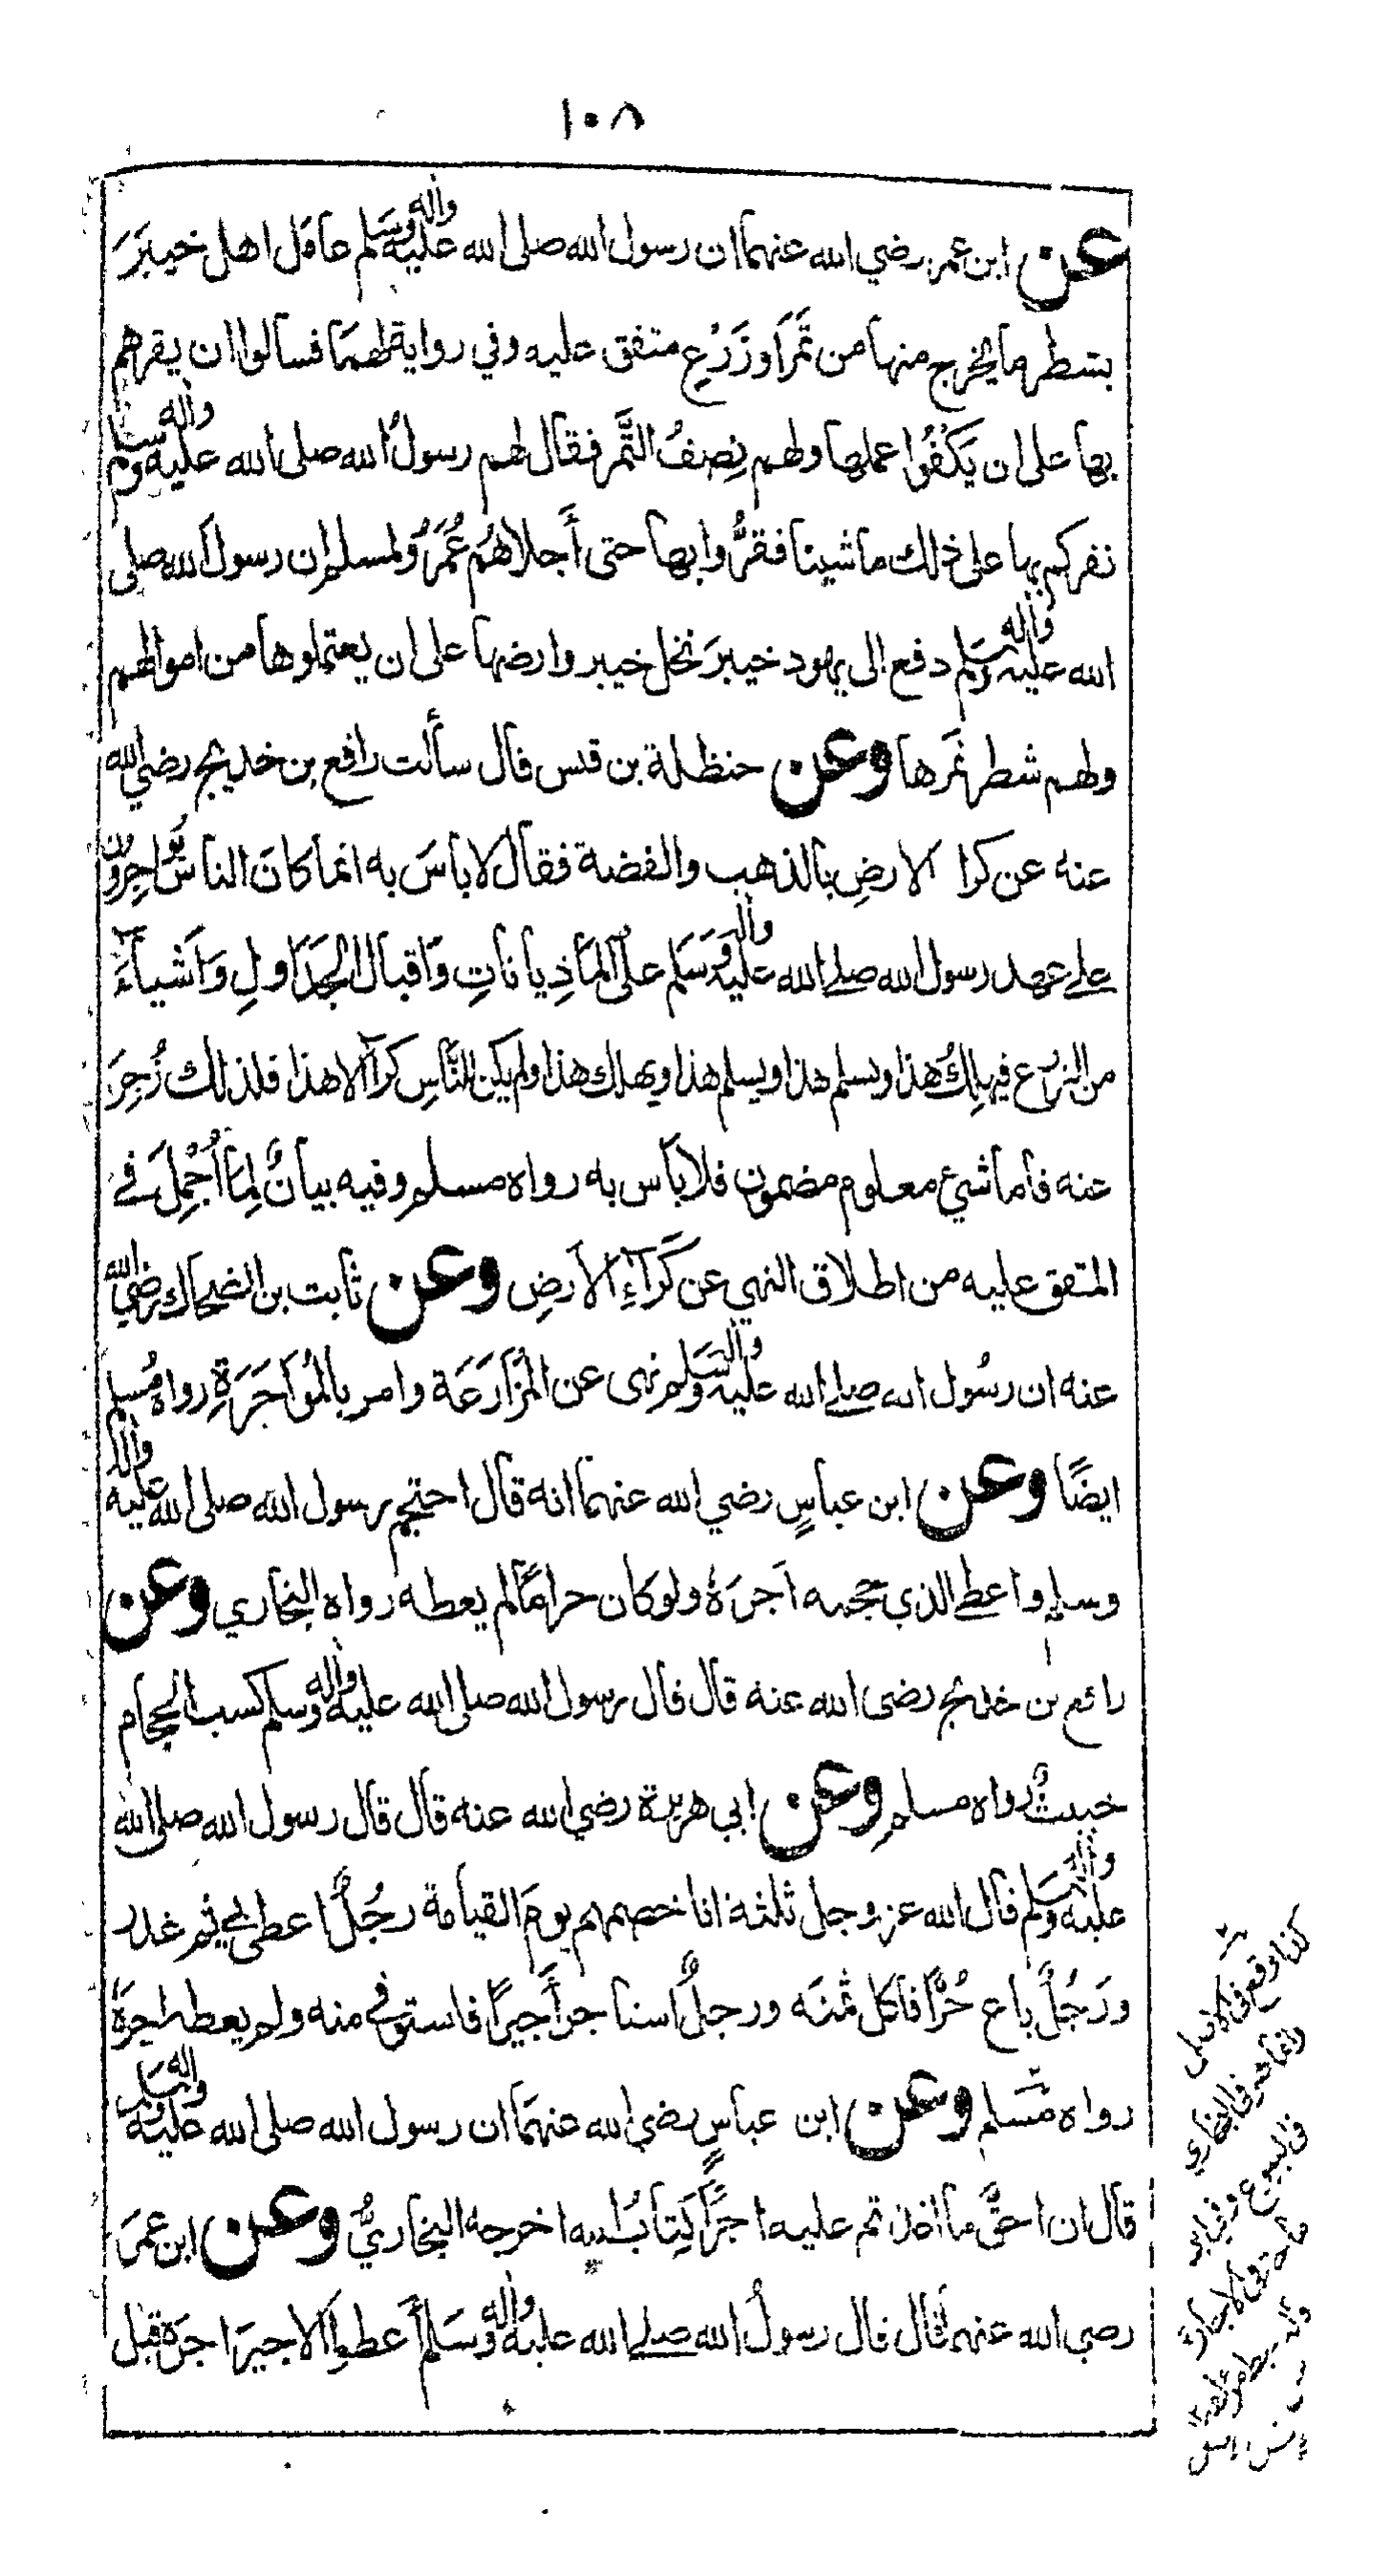 ١٠٨
عن ابن عمر رضي الله عنهما ان رسول الله صلى الله عليه واله وسلم عامَل اهل خيبَرَ
بشطر ما يخرج منها من ثَمَرٍ او زَرْعٍ متفق عليه وفي رواية لهمَا فسالوا ان يقرهم
بها على ان يَكْفُوا عملها ولهم نِصفُ الثَّمَر فقال لهم رسولُ الله صلى الله عليه واله وسلم
نقركم بها على ذلك ما شينا فقرُّوا بها حتى أَجلاهُم عُمَرُ ولمسلم ان رسول الله صلى
الله عليه واله وسلم دفع الى يهود خيبرَ نخل خيبر وارضها على ان يعتملوها من اموالهم
ولهم شطر ثَمَرها وعن حنظلة بن قيس قال سألت رافع بن خديج رضي الله
عنه عن كرا الارضِ بالذهب والفضة فقال لا باسَ به انما كانَ الناسُ يُواجِرُون
على عهد رسول الله صلى الله عليه واله وَسَلم على المَاذِيانَاتِ وَاقبال الجَدَاولِ وَاَشياءَ
من الزرع فيهلِكُ هذا ويسلم هذا ويسلم هذا ويهلك هذا ولم يكن للنَّاسِ كرآ الا هذا فلذلك زُجِرَ
عنه فاما شيء معلوم مضمون فلا بأس به رواه مسلم وفيه بيانٌ لِمَا اُجْمِلَ في
المتفق عليه من اطلاق النهي عن كَرآءِ الارضِ وعن ثابت بن الضحاك رضي الله
عنه ان رسُول الله صلى الله عليه واله وسلم نهى عن المُزَارَعَة وامر بالمُوَاجَرَةِ رواه مُسلم
ايضًا وعن ابن عباسٍ رضي الله عنهما انه قال احتجم رسول الله صلى الله عليه واله
وسلم واعطى الذي حجمه اَجرَهُ ولو كان حرامًا لم يعطه رواه البخاري وعن
رافع بن خديج رضى الله عنه قال قال رسول الله صلى الله عليه واله وسلم كسب الحجام
خبيثٌ رواه مسلم وعن ابي هريرة رضي الله عنه قال قال رسول الله صلى الله
عليه واله وسلم قال الله عز وجل ثلثة انا خصمهم يومَ القيامة رجُلٌ اعطى بي ثم غدر
ورَجُلٌ باع حُرًّا فاكل ثمنَه ورجلٌ استاجر أَجيرًا فاستوفى منه ولم يعطه اجرَهُ
رواه مسلم وعن ابن عباسٍ رضي الله عنهمَا ان رسول الله صلى الله عليه واله وسلم
قال ان احقَّ ما اخذتم عليه اجرًا كِتَابُ الله اخرجه البخاريُّ وعن ابن عمرَ
رضي الله عنهما قال قال رسولُ الله صلى الله عليه واله وسَلم أعطوا الاجيرَ اجرَه قبل
كذا وقع في الاصل
وانما هو في البخاري
في البيوع وفي